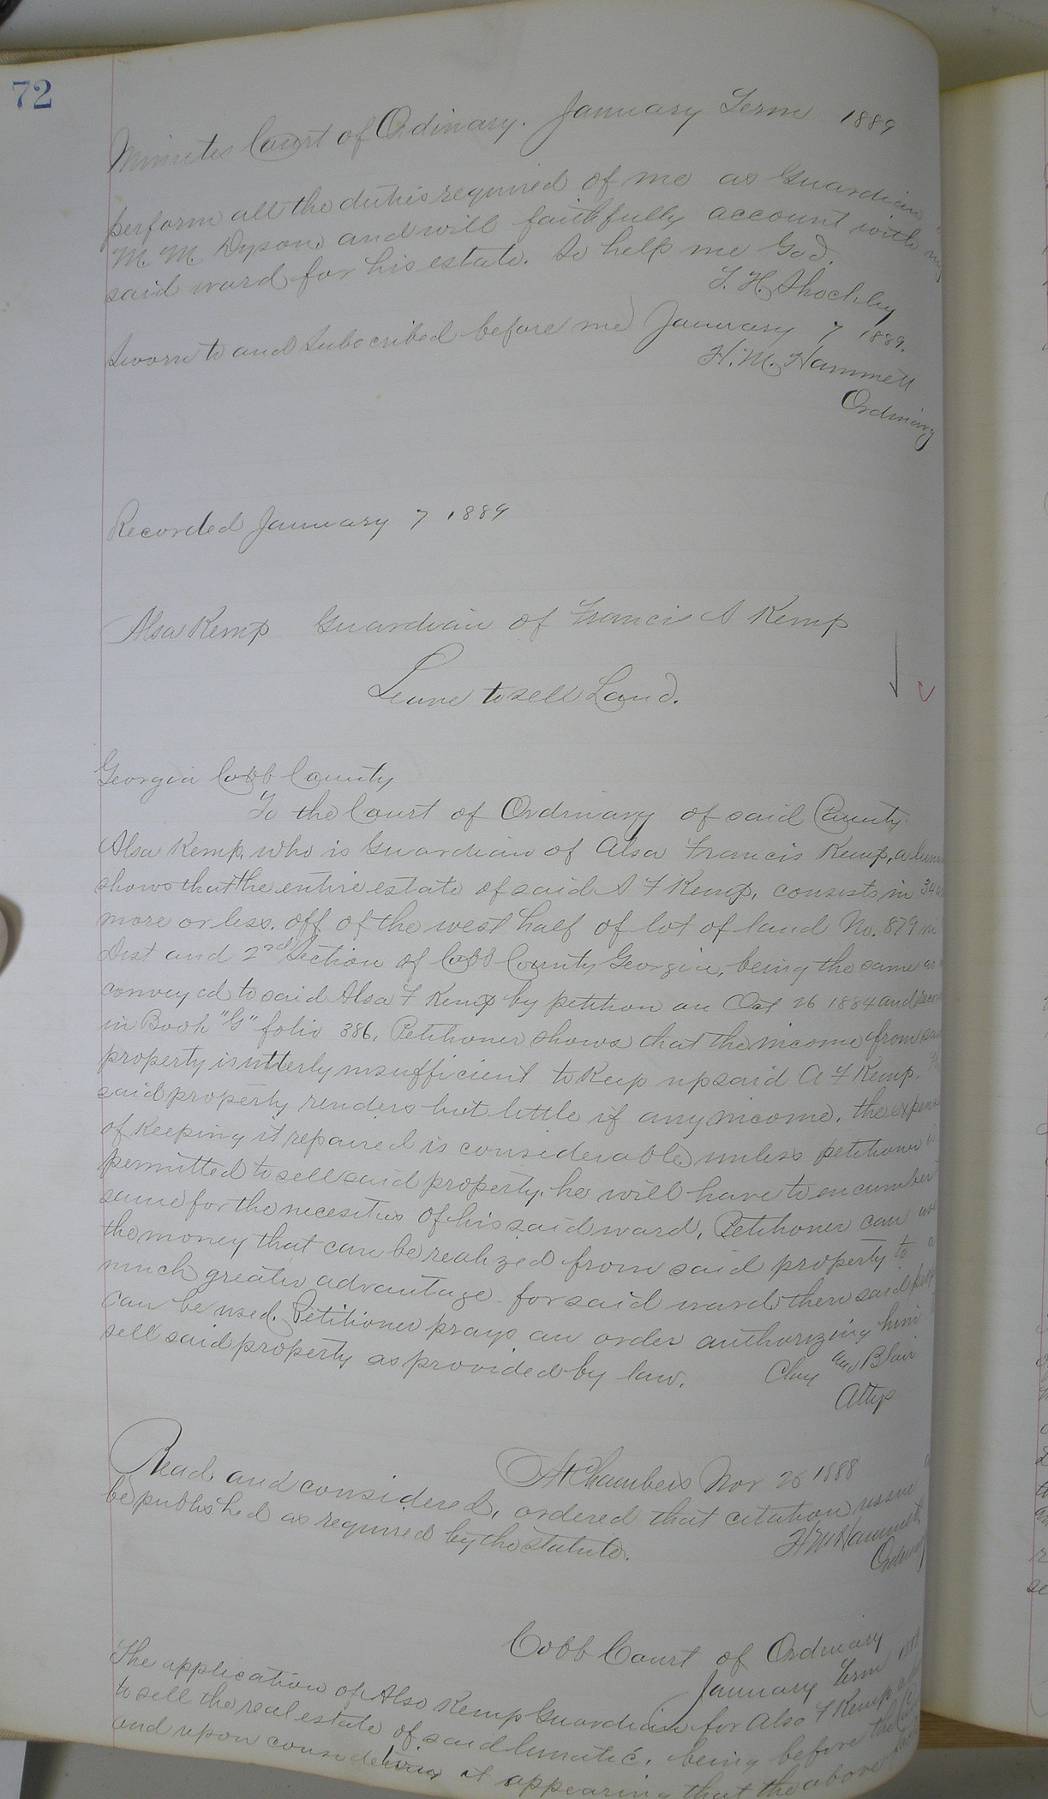 72
Minutes Court of Ordinary. January Term 1889
perform all the duties required of me as Guardian
M. M. Dyson, and will faithfully account with my
said ward for his estate. So help me God.
T. H. Shockley
Sworn to and Subscribed before me January 7 1889.
H. M. Hammett
Ordinary
Recorded January 7 1889
Alsa Kemp Guardian of Francis A Kemp
Leave to sell Land.
Georgia Cobb County
To the Court of Ordinary of said County.
Alsa Kemp, who is Guardian of Alsa Francis Kemp, a
shows that the entire estate of said A F Kemp, consists in 34
more or less. off of the west half of lot of land No. 879 in
Dist and 2nd Section of Cobb County Georgia, being the same
conveyed to said Alsa F Kemp by petition on Oct 26 1884 and
in Book "G" folio 386. Petitioner shows that the income from
property is utterly insufficient to Keep up said A F Kemp.
said property renders but little if any income. the expense
of Keeping it repaired is considerable, unless petitioner
permitted to sell said property, he will have to encumber
same for the necesities of his said ward. Petitioner can use
the money that can be realized from said property to a
much greater advantage for said ward then said
can be used. Petitioner prays an order authorizing him
sell said property as provided by law.
Clay and Blair
Attys
At Chambers Nov 26 1888
Read and considered, ordered that citation issue
be published as required by the statute.
H M Hammett
Ordinary
Cobb Court of Ordinary
January Term
The application of Alsa Kemp Guardian for Alsa F Kemp
to sell the real estate of said lunatic, being before the
and upon considering it appearing that the above